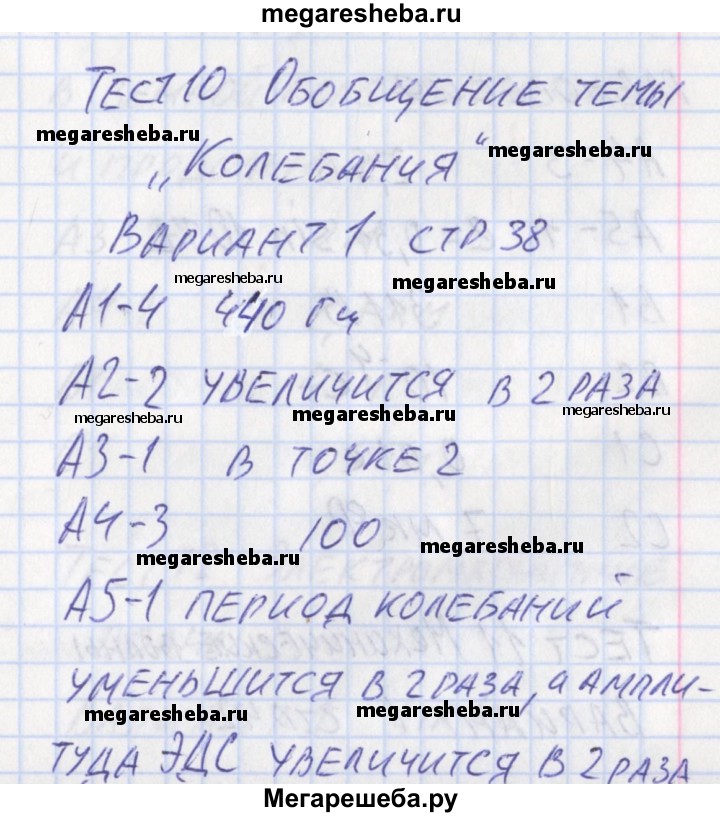 megaresheba.ru
Тест 10 Обобщение темы
megaresheba.ru
„Колебания“
megaresheba.ru
Вариант 1 стр 38
megaresheba.ru
megaresheba.ru
А1-4 440 Гц
А2-2 увеличится в 2 раза
megaresheba.ru
megaresheba.ru
megaresheba.ru
А3-1 в точке 2
А4-3 100
megaresheba.ru
megaresheba.ru
А5-1 период колебаний
уменьшится в 2 раза, а ампли-
megaresheba.ru
megaresheba.ru
туда ЭДС увеличится в 2 раза
Мегарешеба.ру